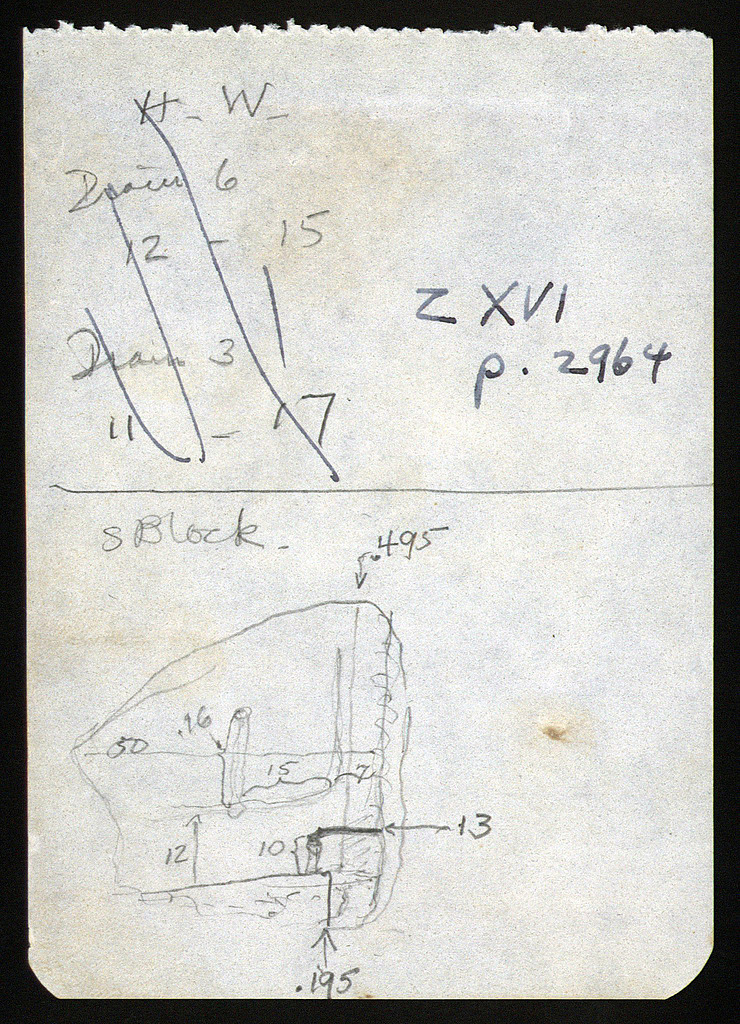 H - W -
Drain 6
12 - 15
Drain 3
11 - 17
Z XVI
p. 2964
S Block -
.495
.16
50
15
7
13
12
10
.195